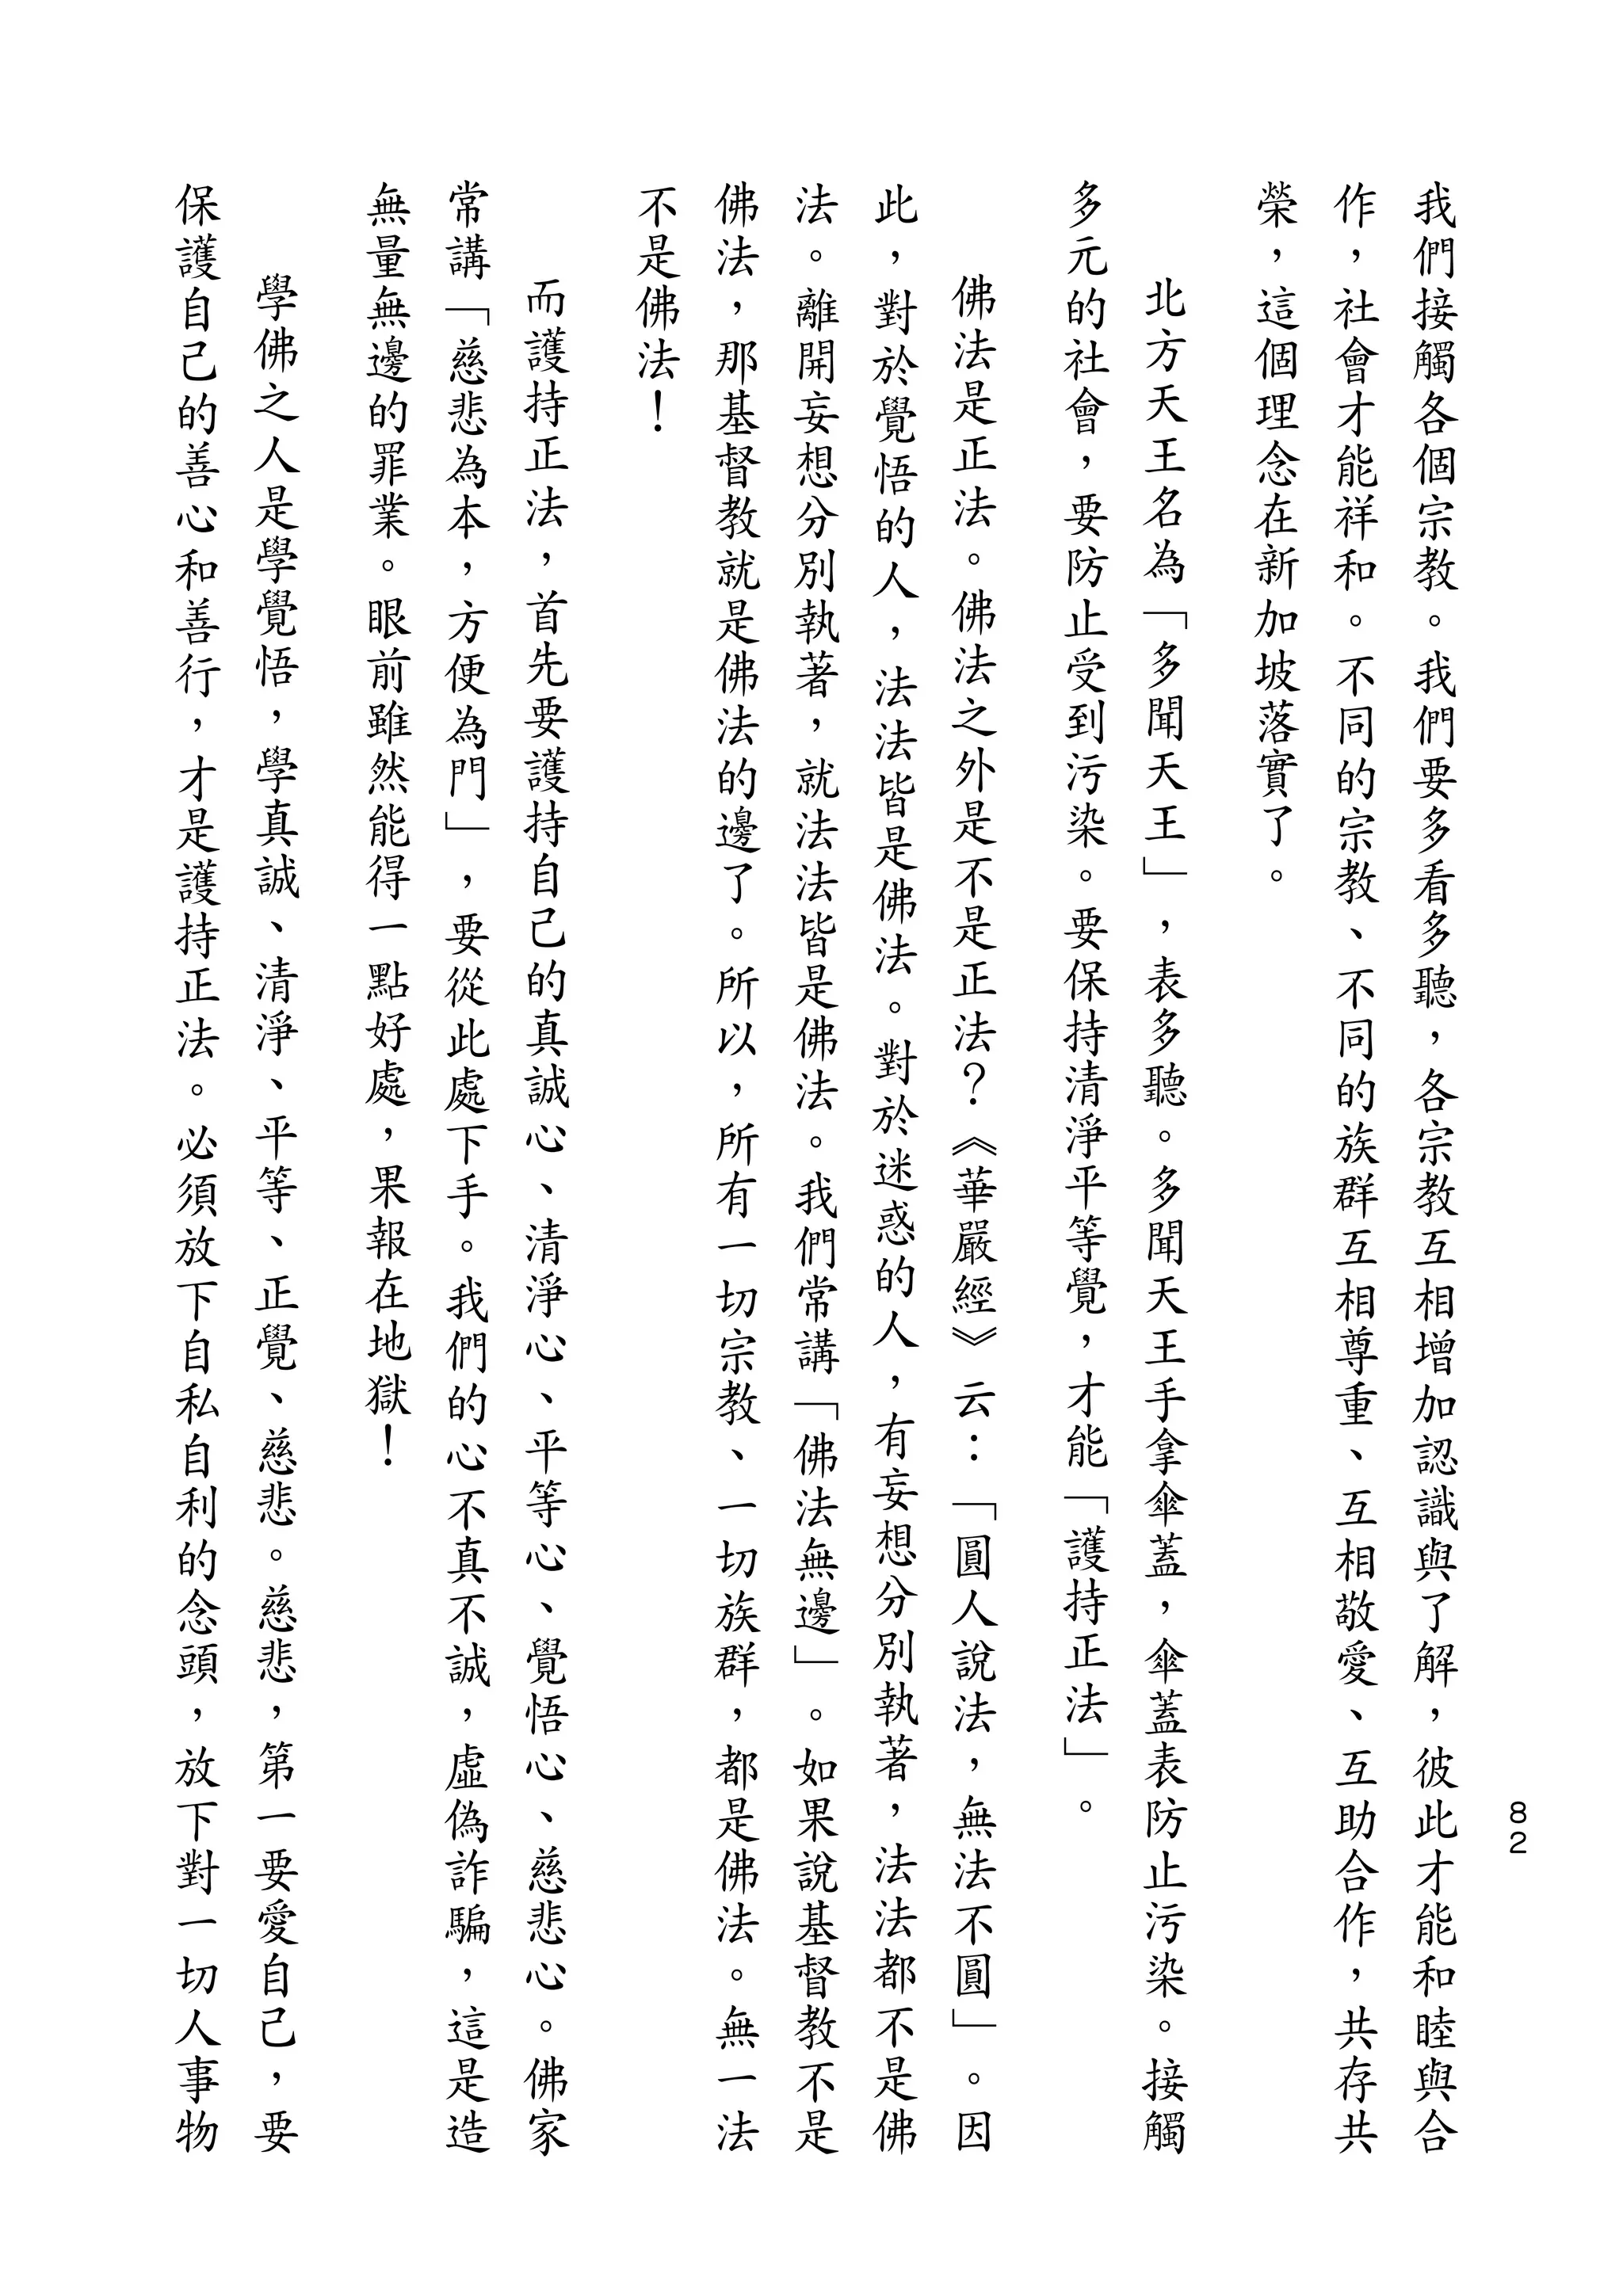 82
我們接觸各個宗教。我們要多看多聽，各宗教互相增加認識與了解，彼此才能和睦與合
作，社會才能祥和。不同的宗教、不同的族群互相尊重、互相敬愛、互助合作，共存共
榮，這個理念在新加坡落實了。
北方天王名為「多聞天王」，表多聽。多聞天王手拿傘蓋，傘蓋表防止污染。接觸
多元的社會，要防止受到污染。要保持清淨平等覺，才能「護持正法」。
佛法是正法。佛法之外是不是正法？《華嚴經》云：「圓人說法，無法不圓」。因
此，對於覺悟的人，法法皆是佛法。對於迷惑的人，有妄想分別執著，法法都不是佛
法。離開妄想分別執著，就法法皆是佛法。我們常講「佛法無邊」。如果說基督教不是
佛法，那基督教就是佛法的邊了。所以，所有一切宗教、一切族群，都是佛法。無一法
不是佛法！
而護持正法，首先要護持自己的真誠心、清淨心、平等心、覺悟心、慈悲心。佛家
常講「慈悲為本，方便為門」，要從此處下手。我們的心不真不誠，虛偽詐騙，這是造
無量無邊的罪業。眼前雖然能得一點好處，果報在地獄！
學佛之人是學覺悟，學真誠、清淨、平等、正覺、慈悲。慈悲，第一要愛自己，要
保護自己的善心和善行，才是護持正法。必須放下自私自利的念頭，放下對一切人事物